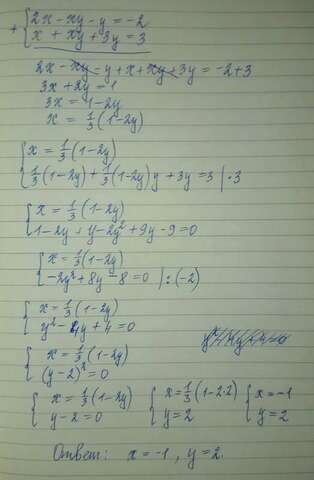 + { 2x - xy - y = -2
x + xy + 3y = 3
2x - xy - y + x + xy + 3y = -2+3
3x + 2y = 1
3x = 1-2y
x = 1/3 (1-2y)
{ x = 1/3 (1-2y)
1/3 (1-2y) + 1/3 (1-2y) y + 3y = 3 | · 3
{ x = 1/3 (1-2y)
1-2y + y-2y² + 9y - 9 = 0
{ x = 1/3 (1-2y)
-2y² + 8y - 8 = 0 | : (-2)
{ x = 1/3 (1-2y)
y² - 4y + 4 = 0
{ x = 1/3 (1-2y)
(y-2)² = 0
{ x = 1/3 (1-2y) { x = 1/3 (1-2·2) { x = -1
y-2 = 0 y = 2 y = 2
Ответ: x = -1, y = 2.